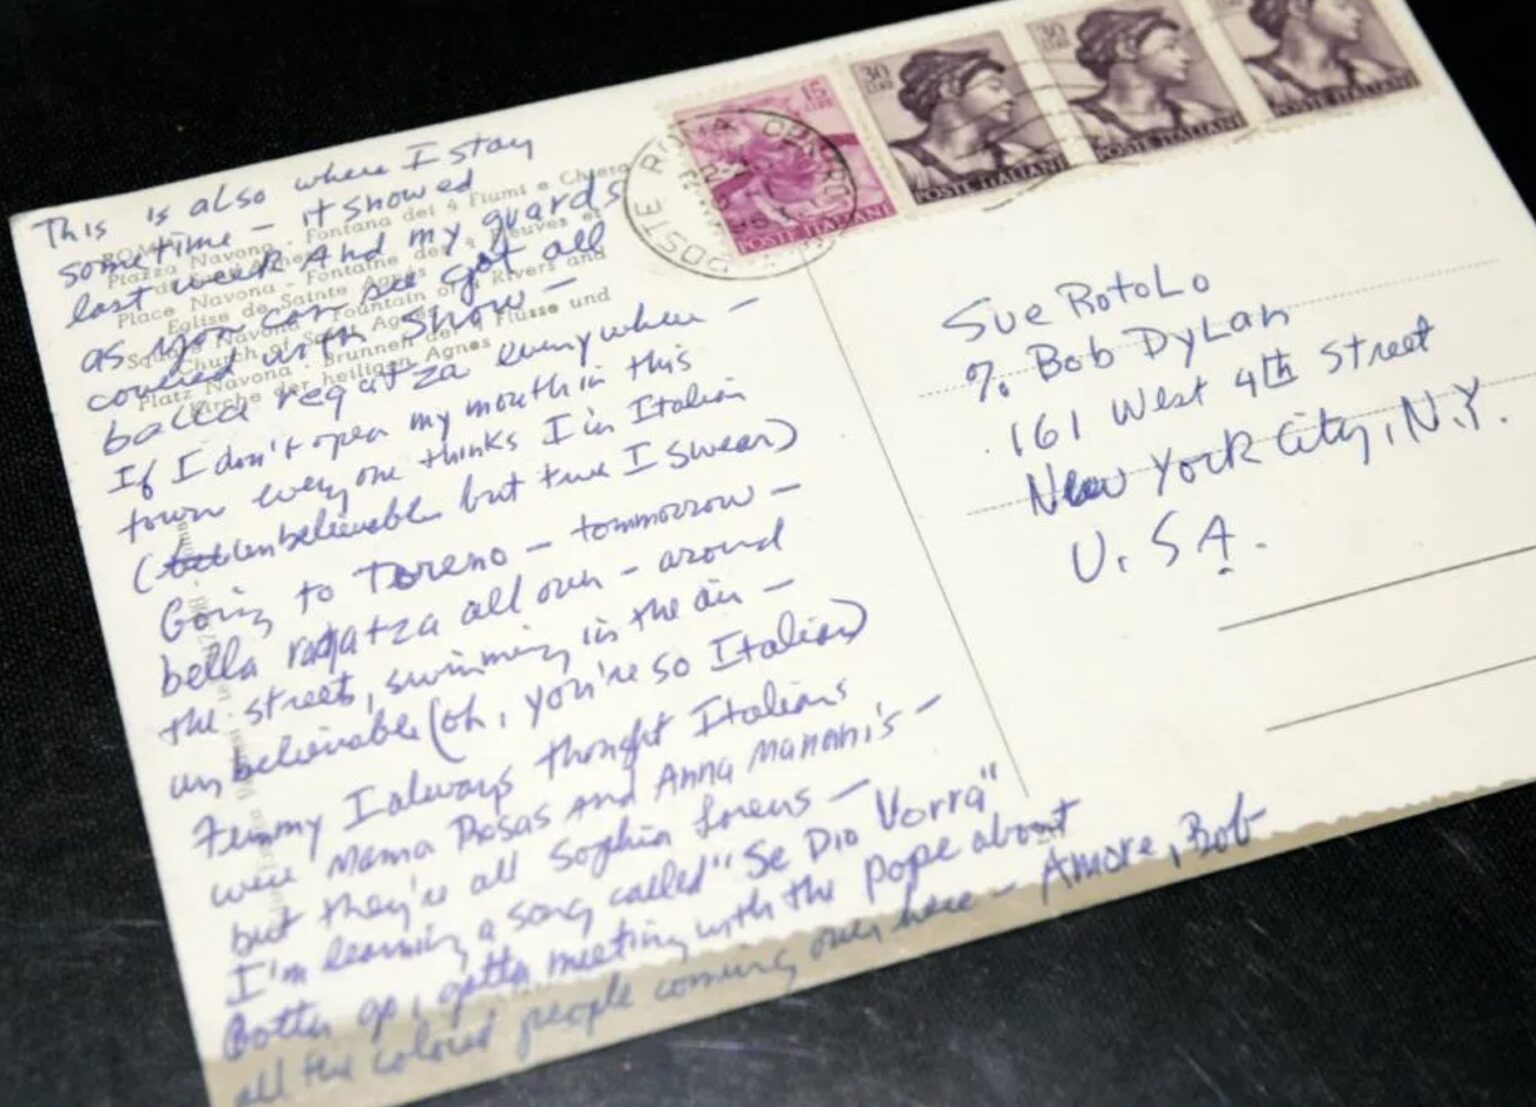 This is also where I stay
sometime - it snowed
last week And my guards
as you can see got all
covered with snow -
balla regatza everywhere -
If I don't open my mouth in this
town everyone thinks I in Italian
(unbelievable but true I swear)
Going to Toreno - tommorrow -
bella ragatza all over - around
the street, swimming in the air -
unbelievable (oh, you're so Italian)
Funny I always thought Italians
were Mama Rosas and Anna Manani's -
but they're all Sophia Lorens -
I'm learning a song called "Se Dio Vorra"
Gotta go, gotta meeting with the pope about
all the colored people coming over here - Amore, Bob
ROMA
Piazza Navona - Fontana dei 4 Fiumi e Chiesa
Place Navona - Fontaine des 4 Fleuves et
Eglise de Sainte Agnès
Square Navona - Fountain of 4 Rivers and
Church of Saint Agnes
Platz Navona - Brunnen der 4 Flüsse und
Kirche der heiligen Agnes
POSTE ROMA CENTRO
15 LIRE
POSTE ITALIANE
30 LIRE
POSTE ITALIANE
30 LIRE
POSTE ITALIANE
POSTE ITALIANE
Sue Rotolo
% Bob Dylan
161 West 4th Street
New York City, N.Y.
U.S.A.